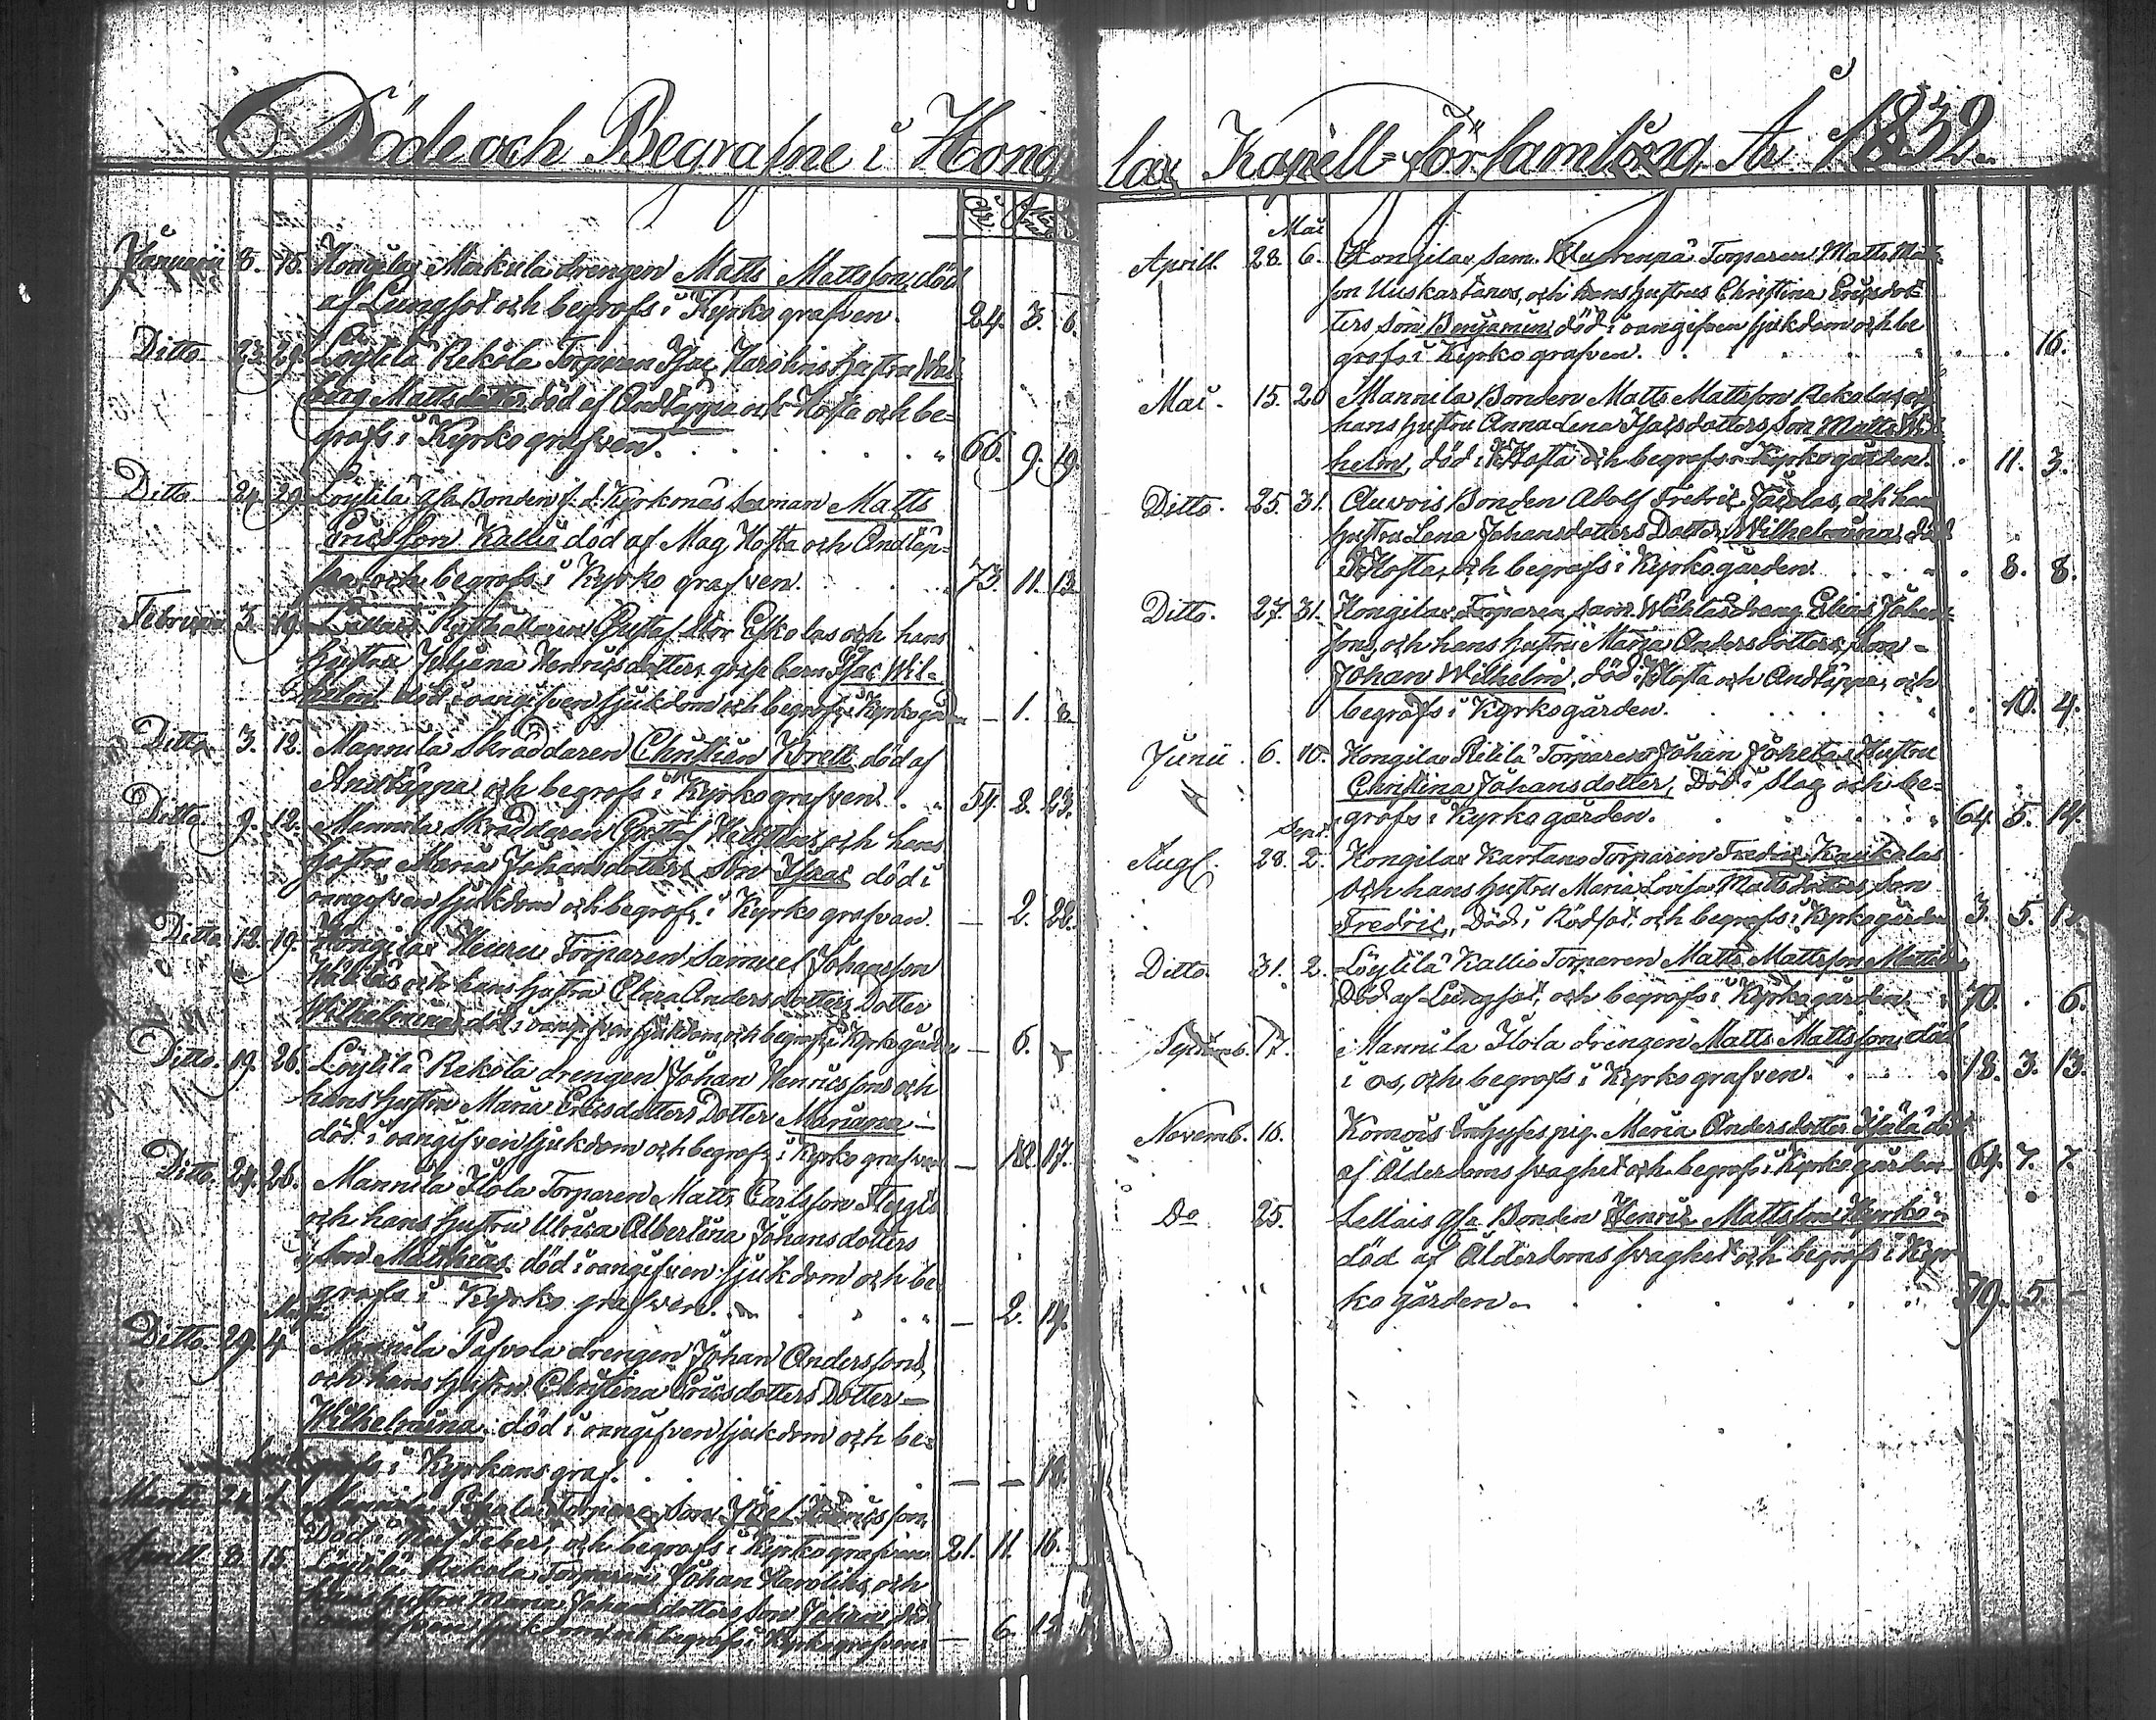 Döde och Begrafne i Hongi
År Månad
Januarii 8. 15. Hongilax Markula drengen Matts Mattsson, död
af Lungsot och begrafs i Kyrko grafven. 24. 3. 6.
Ditto 23. 29. Löylilä Rekola Torparen Isac Karolins hustru Wal-
borg Mattsdotter död af Andtäppa och Hosta och be-
grafs i Kyrko grafven. 66. 9. 19.
Ditto 24. 29. Löylilä Bonden f.d. Kyrkones Matts
Ericsson Kallia död af Mag, Hosta och Andtäp-
pa och begrafs i Kyrko grafven. 73. 11. 13.
Februarii 3. 19. Lellais Rusthållaren Gustaf Eskolas och hans
hustru Juliana Henricsdotters barn Isac Wil-
helm död i oangifven sjukdom och begrafs i Kyrkogården — 1. 8.
Ditto 3. 12. Mannila Skräddaren Christian död af
Andtäppa och begrafs i Kyrko grafven. 54. 2. 23.
Ditto 9. 12. Mannila Skräddaren Gustaf och hans
hustru Maria Johansdotters Son Isaac död i
oangifven sjukdom och begrafs i Kyrko grafven. — 2. 22.
Ditto 12. 19. Hongilax Heuru Torparen Samuel Johansson
och hans hustru Clara Andersdotters Dotter
Wilhelmina död i oangifven sjukdom och begrafs i Kyrkogården — 6.
Ditto. 19. 26. Löylilä Rekola drengen Johan Henricssons och
hans hustru Maria Ericsdotters Dotter Mariana
död i oangifven sjukdom och begrafs i Kyrko grafven — 17.
Ditto. 24. 26. Mannila Ilola Torparen Matts Carlsson
och hans hustru Ulrica Albertina Johansdotters
Son Matthias död i oangifven sjukdom och be-
grafs i Kyrko grafven. — 2. 14.
Ditto. 29. 4. Mannila Pafvola drengen Johan Anderssons
och hans hustru Christina Ericsdotters Dotter
Wilhelmina död i oangifven sjukdom och be-
grafs i Kyrkans graf. — — 18.
Martii Mannila Torpare Son
Död Feber, och begrafs i Kyrkografven 21. 11. 16.
Aprill 8. 15. Löylilä Rekola Torparen Johan Karolins och
hans hustru Maria Johansdotters Son Johan död
i oangifven sjukdom och begrafs i Kyrkografven — 6. 12.
lax Kapell-Församling År 1832.
Mai
Aprill. 28. 6. Hongilax, sam. Torparen Matts Matts-
son Uuskartanos, och hans hustrus Christina Ericsdot-
ters Son Benjamin, död i oangifven sjukdom och be
grafs i Kyrko grafven. 16.
Mai. 15. 20 Mannila Bonden Matts Mattsson Rekolas och
hans hustru Anna Lena Isacsdotters Son Matts Wil-
helm, död i Hosta och begrafs i Kyrkogården. 11. 3.
Ditto. 25. 31. Auvois Bonden Adolf Fredric och hans
hustru Lena Johansdotters Dotter Wilhelmina, död
i Hosta, och begrafs i Kyrkogården. 8. 8.
Ditto. 27. 31. Hongilax Torparen, sam. Elias Johans-
sons, och hans hustru Maria Andersdotters, Son
Johan Wilhelm, död i Hosta och Andtäppa, och
begrafs i Kyrkogården. 10. 4.
Junii 6. 10. Hongilax Torparen Johan Hustru
Christina Johansdotter, Död i Slag och be-
grafs i Kyrkogården. 64. 5. 14.
Sept.
Aug. 28. 2. Hongilax Kartano Torparen Fredric Kaukolas
och hans hustru Maria Lovisa Mattsdotters, Son
Fredric, Död i Rödsot, och begrafs i Kyrkogården 3. 5.
Ditto. 31. 2. Löylilä Kallio Torparen Matts Mattsson
Död af Lungsot, och begrafs i Kyrkogården. 70. 6.
Septemb. 17. Mannila Ilola drengen Matts Mattsson, död
i os, och begrafs i Kyrko grafven. 18. 3. 13.
Novemb. 16. Komois Inhyses pig. Maria Andersdotter död
af Ålderdoms svaghet och begrafs i Kyrkogården 64. 7. 7.
Do 25. Lellais Bonden Henric Mattsson
död af Ålderdoms svaghet och begrafs i Kyr
ko gården. 79. 5 —